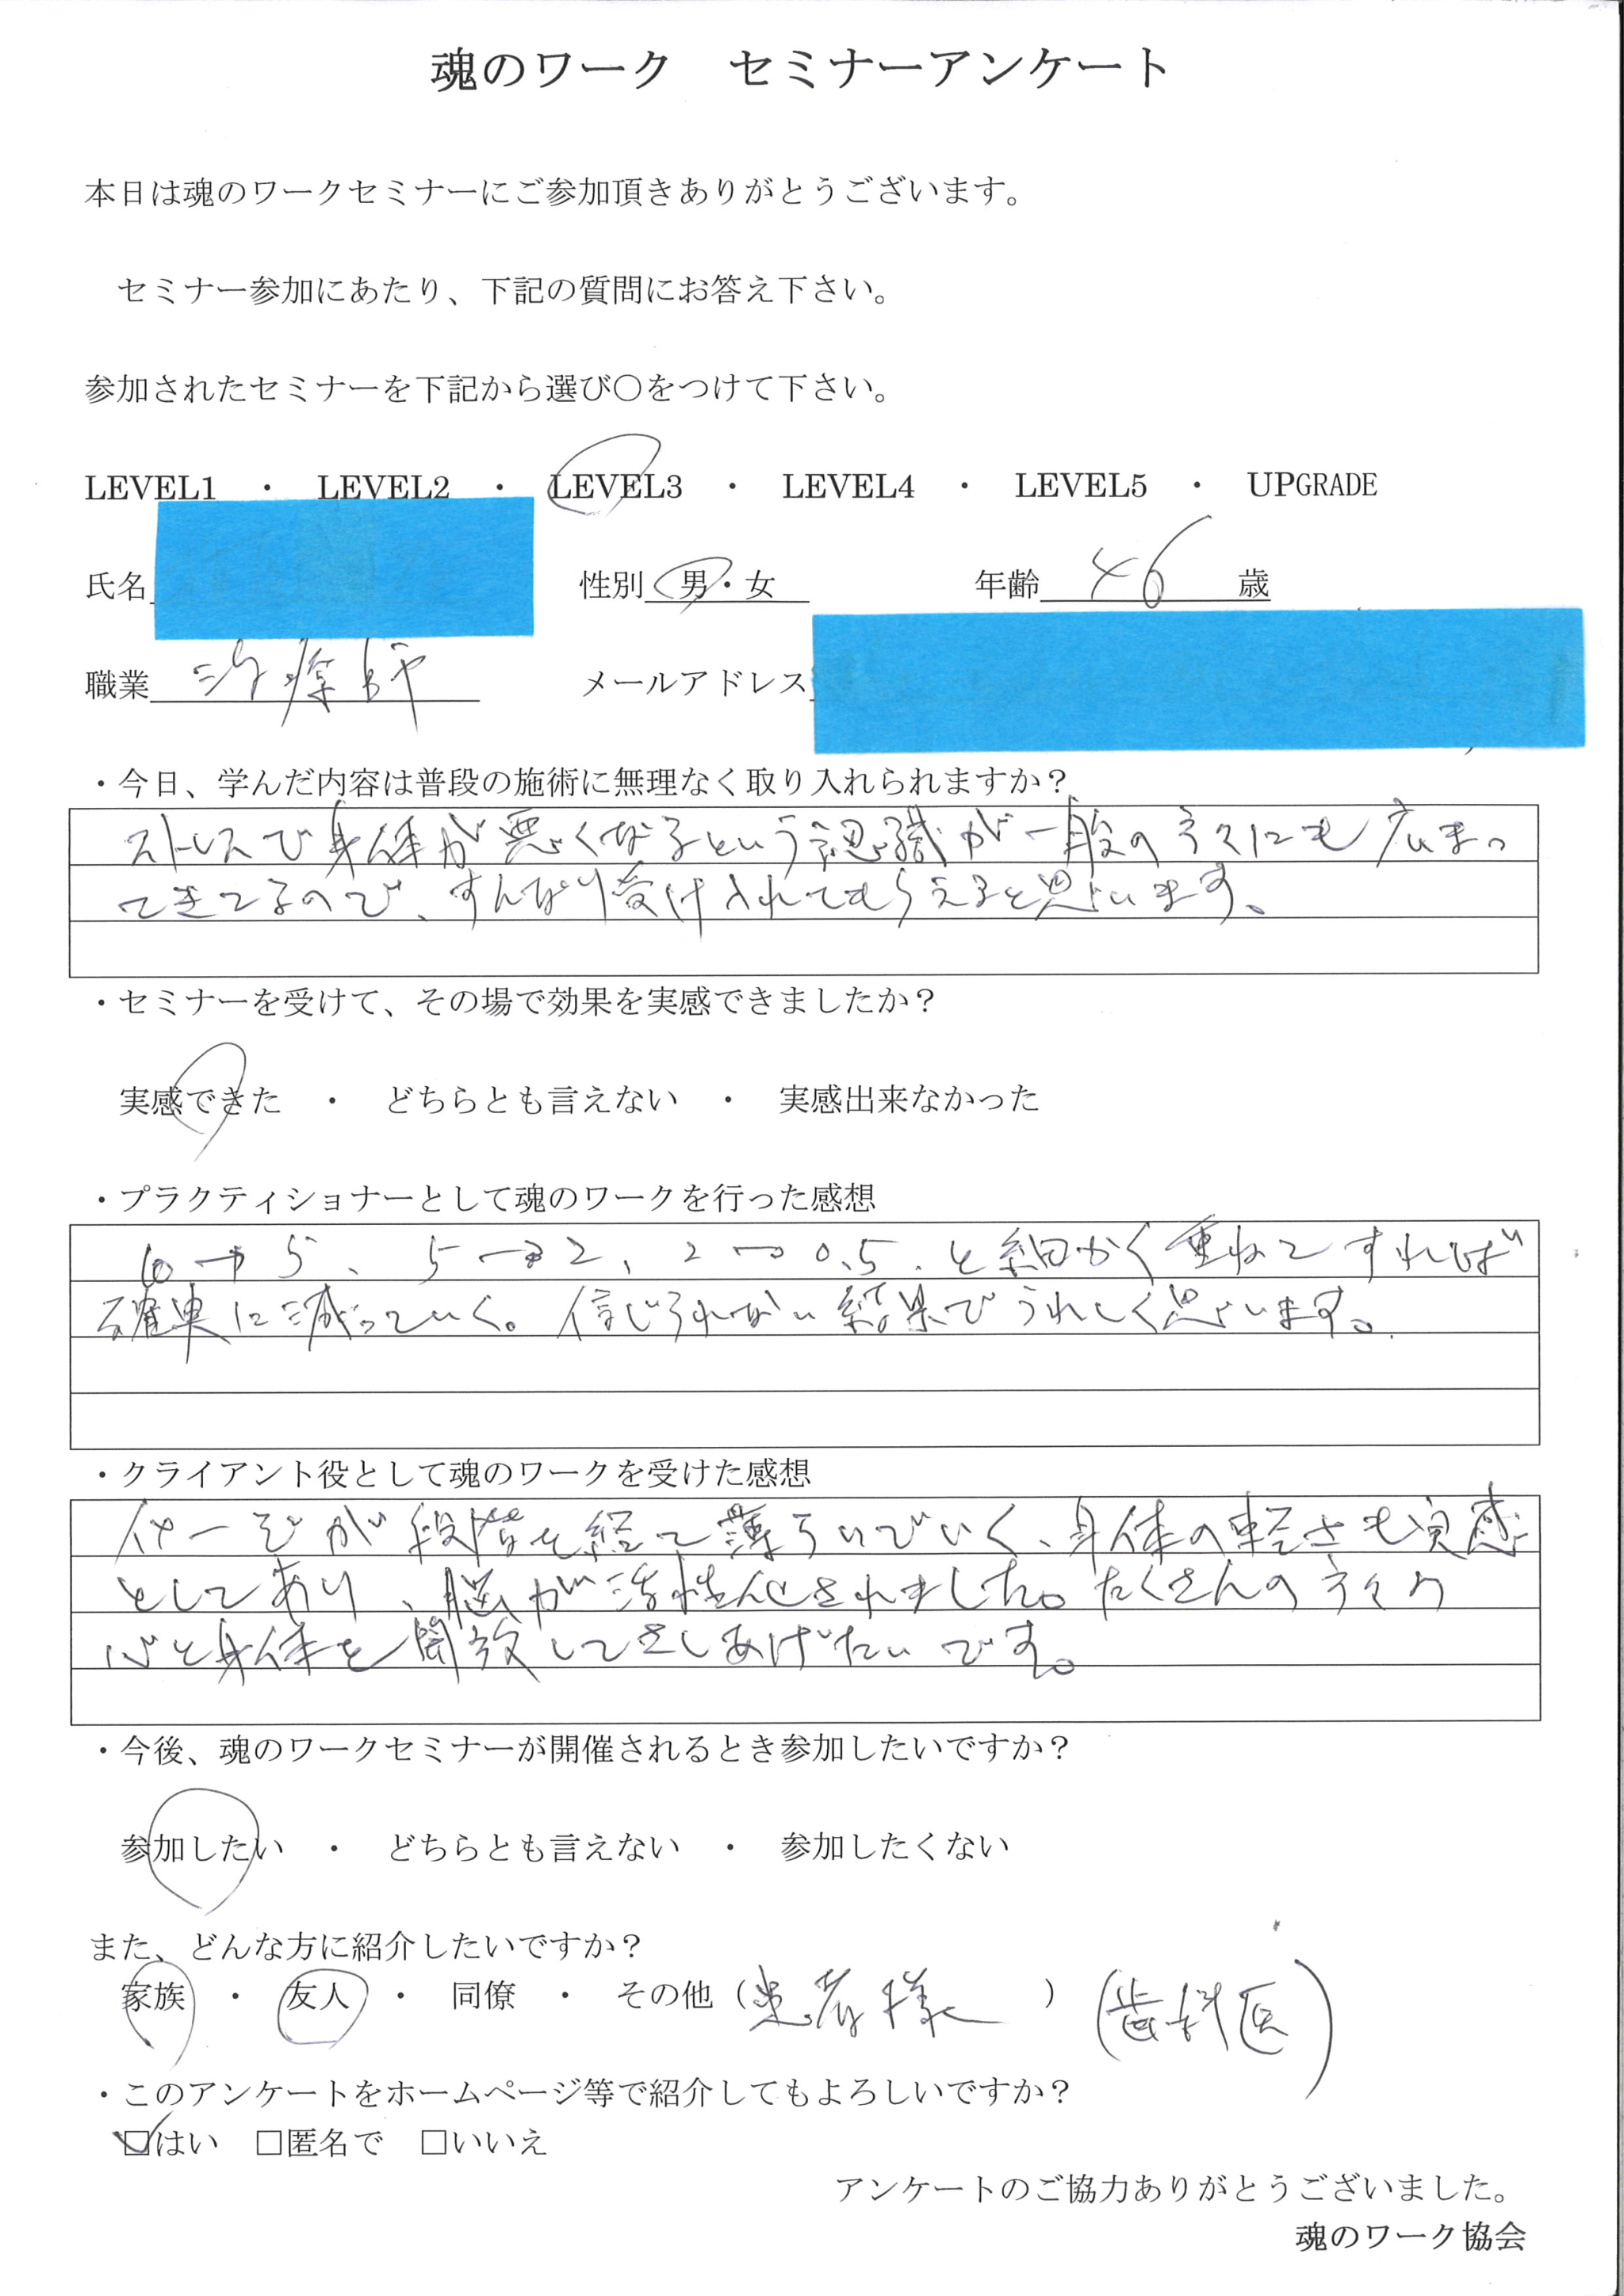 魂のワーク　セミナーアンケート
本日は魂のワークセミナーにご参加頂きありがとうございます。
セミナー参加にあたり、下記の質問にお答え下さい。
参加されたセミナーを下記から選び〇をつけて下さい。
LEVEL1 ・ LEVEL2 ・ LEVEL3 ・ LEVEL4 ・ LEVEL5 ・ UPGRADE
氏名 性別 男・女 年齢 46 歳
職業 治療師 メールアドレス
・今日、学んだ内容は普段の施術に無理なく取り入れられますか？
ストレスで身体が悪くなるという認識が一般の方々にも広まっ
てきてるので、すんなり受け入れてもらえると思います。
・セミナーを受けて、その場で効果を実感できましたか？
実感できた ・ どちらとも言えない ・ 実感出来なかった
・プラクティショナーとして魂のワークを行った感想
10→5、5→2、2→0.5、と細かく重ねてすれば
確実に減っていく。信じられない結果でうれしく思います。
・クライアント役として魂のワークを受けた感想
が段階を経て薄らいでいく、身体の軽さも実感
としてあり、脳が活性化されました。たくさんの方々の
心と身体を開放してさしあげたいです。
・今後、魂のワークセミナーが開催されるとき参加したいですか？
参加したい ・ どちらとも言えない ・ 参加したくない
また、どんな方に紹介したいですか？
家族 ・ 友人 ・ 同僚 ・ その他（患者様）（歯科医）
・このアンケートをホームページ等で紹介してもよろしいですか？
☑はい □匿名で □いいえ
アンケートのご協力ありがとうございました。
魂のワーク協会